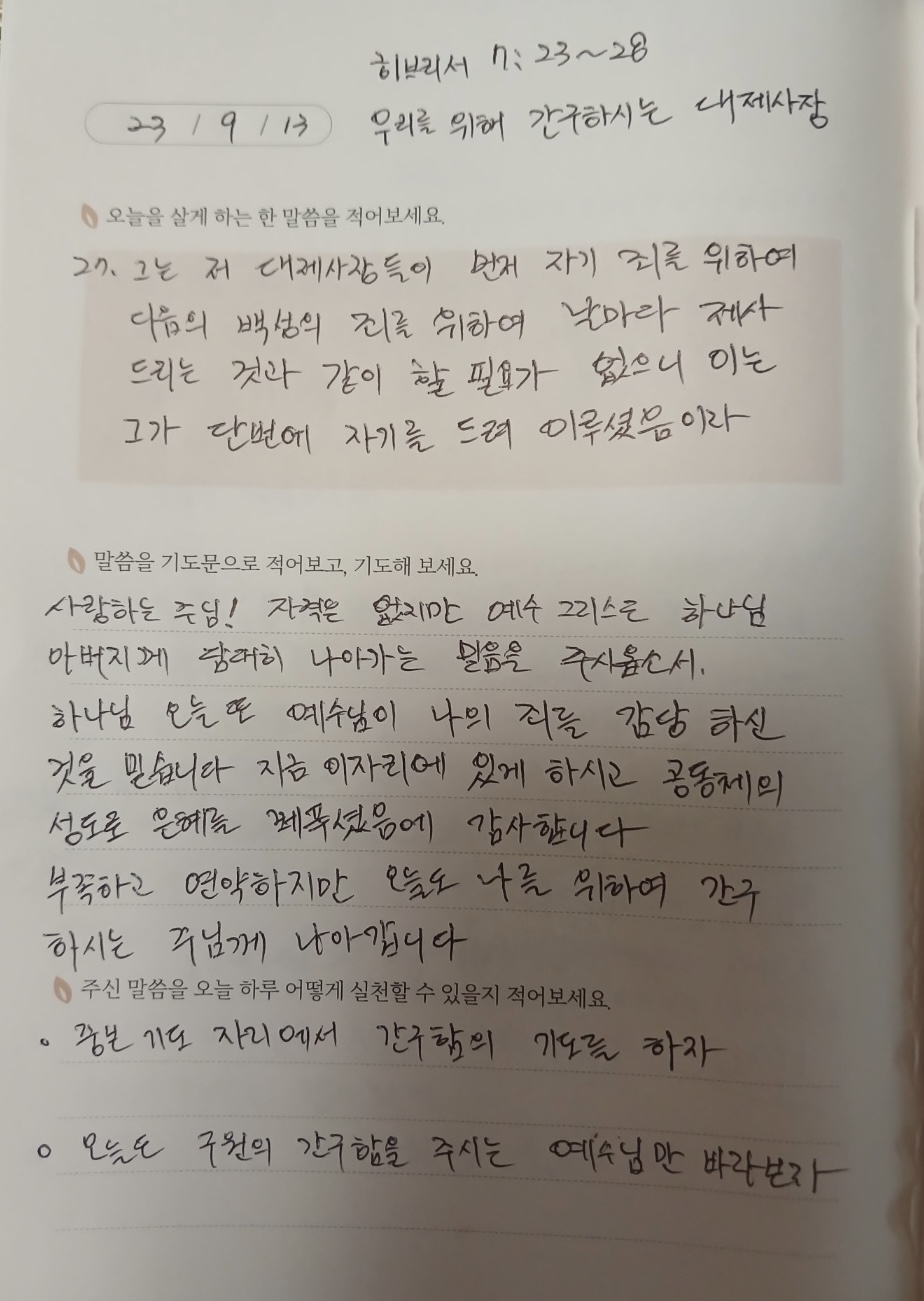 히브리서 7: 23~28
23 / 9 / 13 우리를 위해 간구하시는 대제사장
오늘을 살게 하는 한 말씀을 적어보세요.
27. 그는 저 대제사장들이 먼저 자기 죄를 위하여
다음의 백성의 죄를 위하여 날마다 제사
드리는 것과 같이 할 필요가 없으니 이는
그가 단번에 자기를 드려 이루셨음이라
말씀을 기도문으로 적어보고, 기도해 보세요.
사랑하는 주님! 자격은 없지만 예수 그리스도 하나님
아버지께 담대히 나아가는 믿음을 주시옵소서.
하나님 오늘 또 예수님이 나의 죄를 감당 하신
것을 믿습니다 지금 이자리에 있게 하시고 공동체의
성도로 은혜를 베푸셨음에 감사합니다
부족하고 연약하지만 오늘도 나를 위하여 간구
하시는 주님께 나아갑니다
주신 말씀을 오늘 하루 어떻게 실천할 수 있을지 적어보세요.
• 중보 기도 자리에서 간구함의 기도를 하자
o 오늘도 구원의 간구함을 주시는 예수님만 바라보자